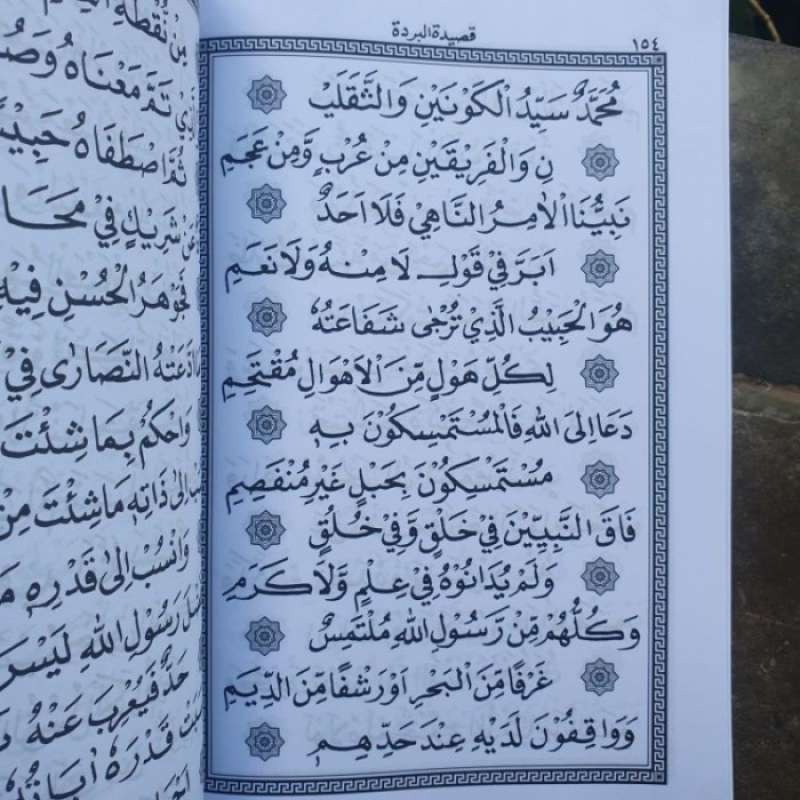 ١٥٤
قصيدة البردة
مُحَمَّدٌ سَيِّدُ الْكَوْنَيْنِ وَالثَّقَلَيْـ
نِ وَالْفَرِيْقَيْنِ مِنْ عُرْبٍ وَّمِنْ عَجَمِ
نَبِيُّنَا الْاٰمِرُ النَّاهِيْ فَلَا اَحَدٌ
اَبَرَّ فِيْ قَوْلِ لَا مِنْهُ وَلَا نَعَمِ
هُوَ الْحَبِيْبُ الَّذِيْ تُرْجٰى شَفَاعَتُهُ
لِكُلِّ هَوْلٍ مِّنَ الْاَهْوَالِ مُقْتَحَمِ
دَعَا اِلَى اللهِ فَالْمُسْتَمْسِكُوْنَ بِهٖ
مُسْتَمْسِكُوْنَ بِحَبْلٍ غَيْرِ مُنْفَصِمِ
فَاقَ النَّبِيِّيْنَ فِيْ خَلْقٍ وَّفِيْ خُلُقٍ
وَلَمْ يُدَانُوْهُ فِيْ عِلْمٍ وَّلَا كَرَمِ
وَكُلُّهُمْ مِّنْ رَّسُوْلِ اللهِ مُلْتَمِسٌ
غَرْفًا مِّنَ الْبَحْرِ اَوْ رَشْفًا مِّنَ الدِّيَمِ
وَوَاقِفُوْنَ لَدَيْهِ عِنْدَ حَدِّهِمِ
تَمَّ مَعْنَاهُ وَصُ
ثُمَّ اصْطَفَاهُ حَبِيْبً
عَنْ شَرِيْكٍ فِيْ مَحَا
فَجَوْهَرُ الْحُسْنِ فِيْهِ
النَّصَارٰى فِيْ
وَاحْكُمْ بِمَا شِئْتَ
اِلٰى ذَاتِهٖ مَا شِئْتَ مِنْ
وَانْسُبْ اِلٰى قَدْرِهٖ مَ
رَسُوْلِ اللهِ لَيْسَ
حَدٌّ فَيُعْرِبَ عَنْهُ
قَدْرَهُ اٰيَاتُهُ